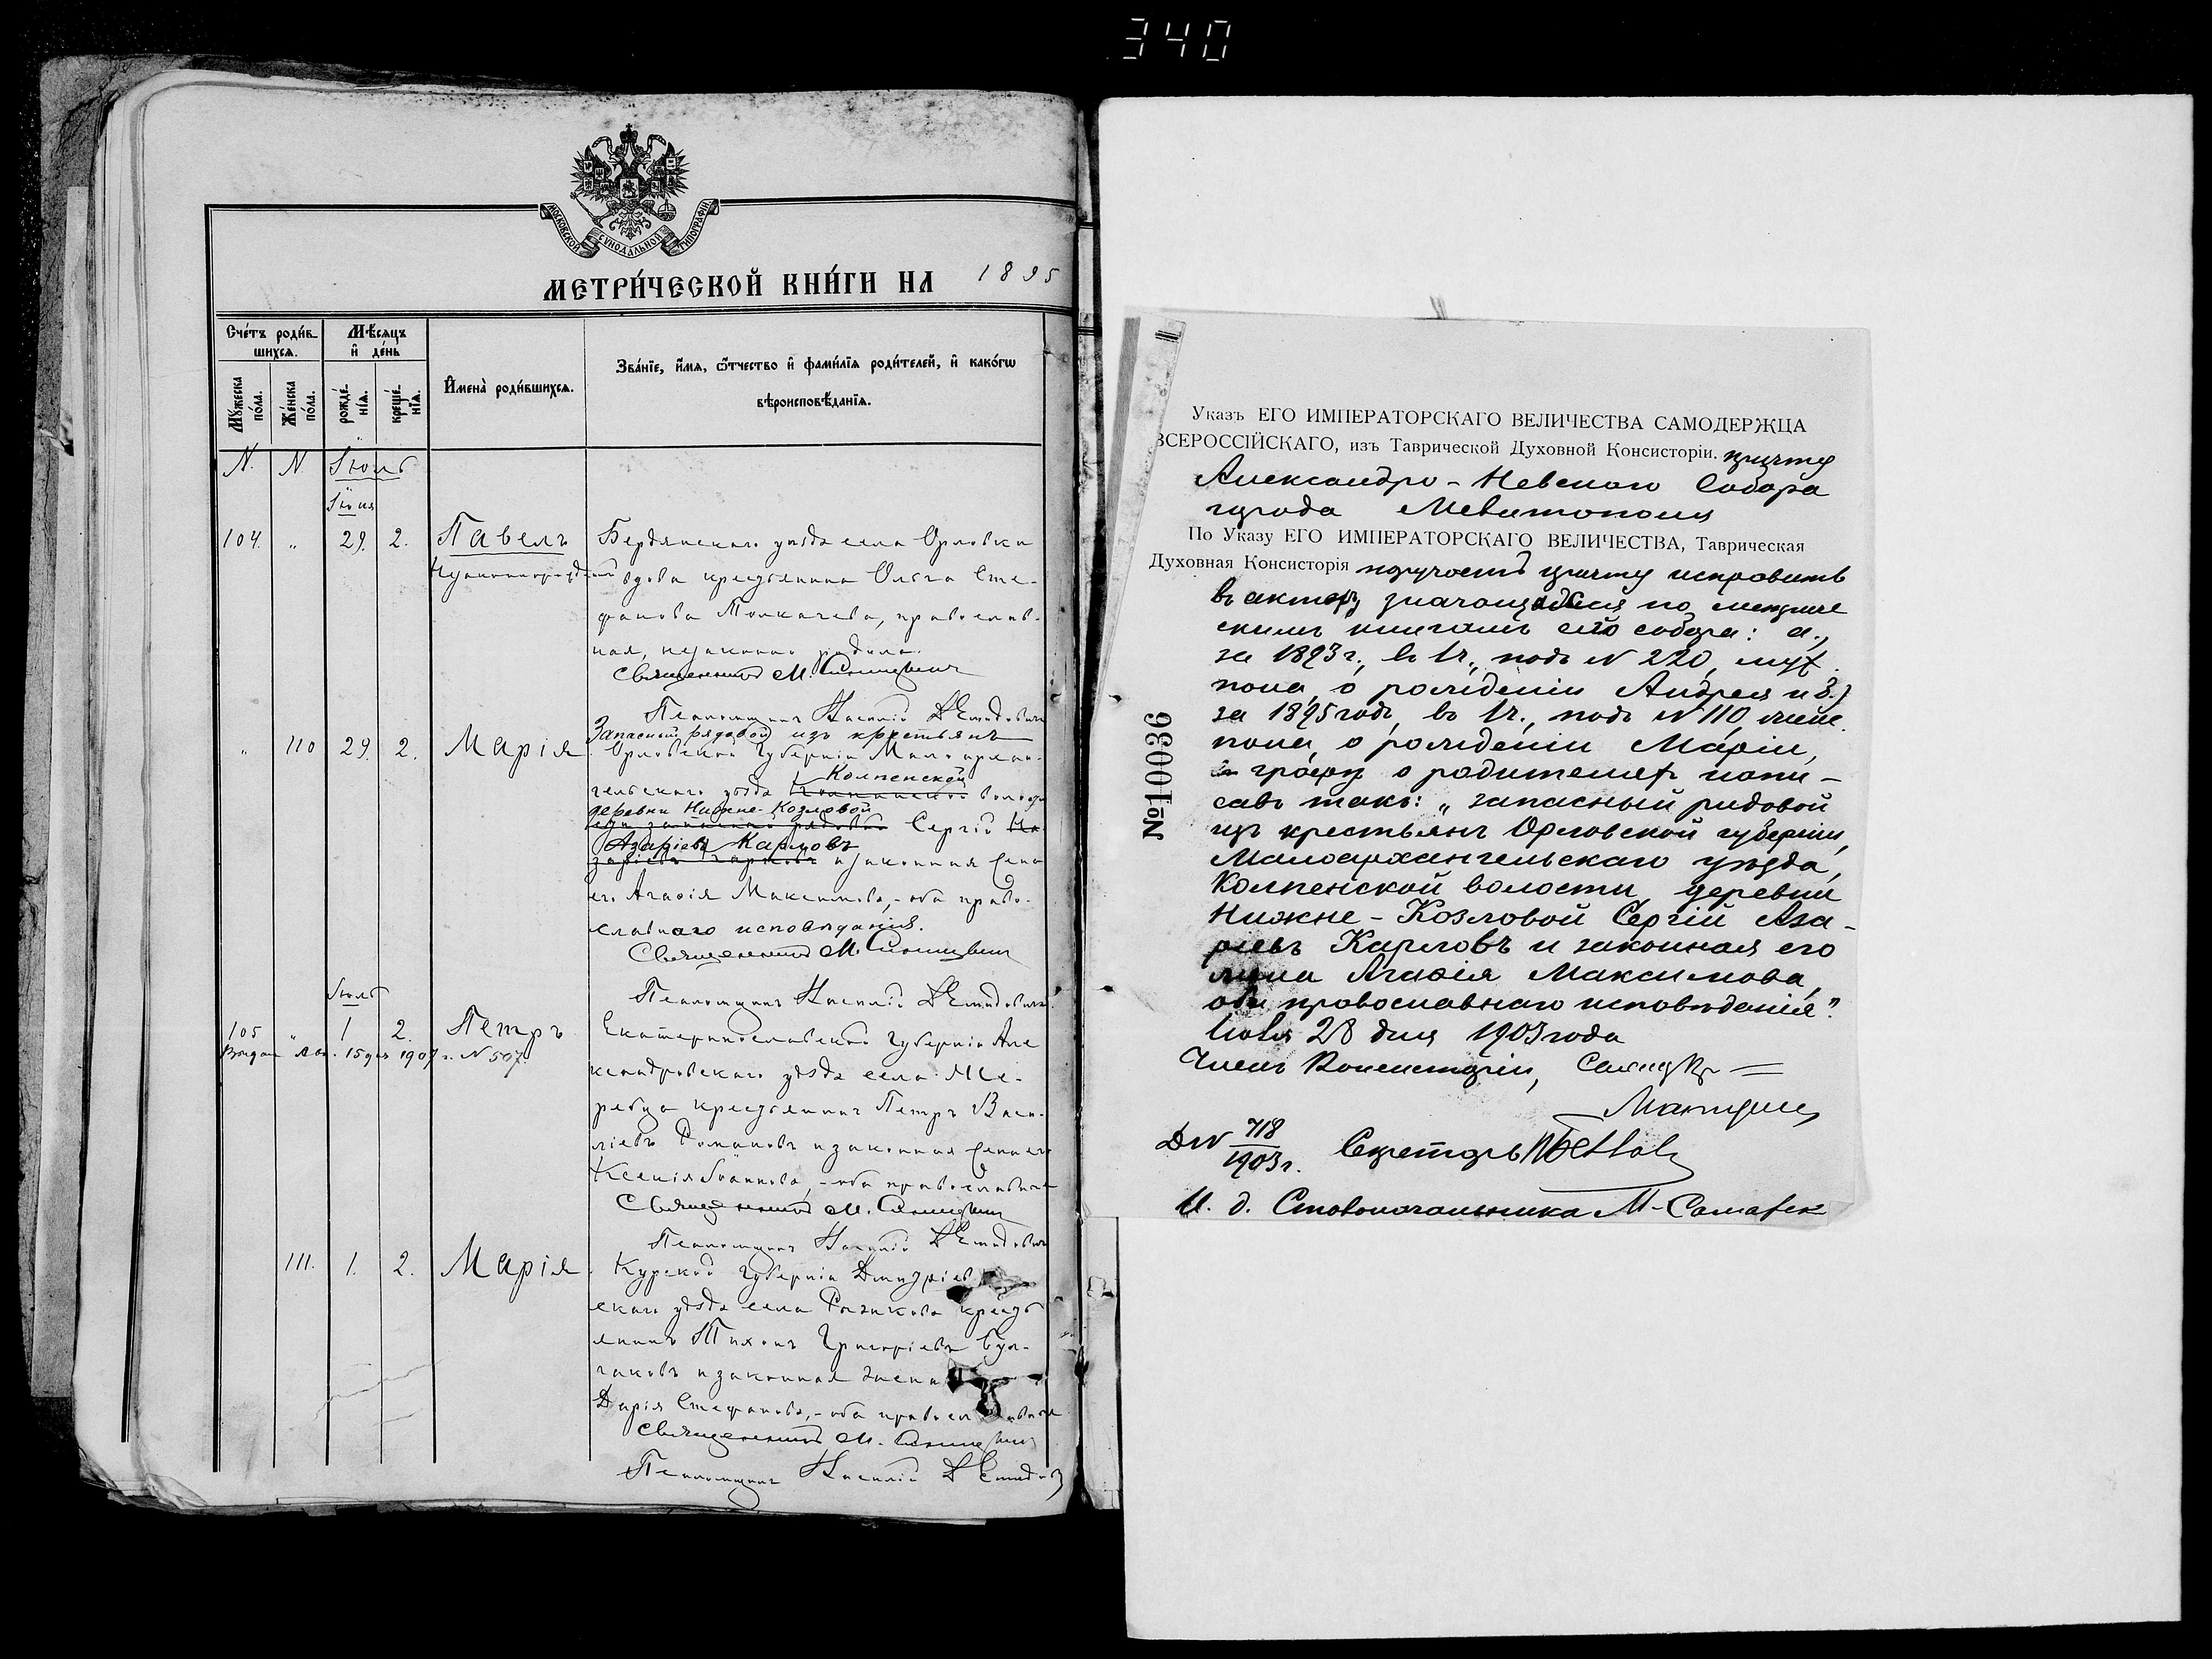 340
МОСКОВСКОЙ СѴНОДАЛЬНОЙ ТИПОГРАФІИ
МЕТРИ́ЧЕСКОЙ КНИ́ГИ НА 1895
Сче́тъ роди́в-
шихсѧ.
Мѣ́сѧцъ
и҆ де́нь
Му́жеска по́ла.
Же́нска по́ла.
рожде́-
нїѧ.
креще́-
нїѧ.
И҆мена̀ роди́вшихсѧ.
Зва́нїе, и҆́мѧ, ѻ҆́тчество и҆ фами́лїѧ роди́телей, и҆ како́гѡ
вѣроисповѣ́данїѧ.
N. N Іюль
Іюня
104. " 29. 2. Павелъ
Незаконнорожденный
Бердянскаго уѣзда села Орловки
вдова крестьянина Ольга Сте-
фанова Толкачева, православ-
ная, незаконно родила.
Священникъ М.
Псаломщикъ Василій Демидовичъ
" 110 29. 2. Марія
Запасный рядовой изъ крестьянъ
Орловской губерніи Малоархан-
гельскаго уѣзда Колпенской волости
деревни Нижне-Козловой
Сергій
Азаріевъ Карловъ
и законная жена
его Агаѳія Максимова,- оба право-
славнаго исповѣданія.
Священникъ М.
Псаломщикъ Василій Демидовичъ
Іюль
105 " 1 2. Петръ
Выдан 15 дек 1907 г. N 507.
Екатеринославской губерніи Але
ксандровскаго уѣзда села Же-
ребца крестьянинъ Петръ Васи-
ліевъ Романовъ и законная жена его
Ксенія Іоаннова,- оба православные
Священникъ М.
Псаломщикъ Василій Демидовичъ
111. 1. 2. Марія
Курской губерніи Дмитріев
скаго уѣзда села крестъ
янинъ Тихонъ Григоріевъ Бул-
гаковъ и законная жена
Дарія Стефанова,- оба православные
Священникъ М.
Псаломщикъ Василій Демидов
Указъ ЕГО ИМПЕРАТОРСКАГО ВЕЛИЧЕСТВА САМОДЕРЖЦА
ВСЕРОССІЙСКАГО, изъ Таврической Духовной Консисторіи. причту
Александро-Невскаго Собора
города Мелитополя
По Указу ЕГО ИМПЕРАТОРСКАГО ВЕЛИЧЕСТВА, Таврическая
Духовная Консисторія поручаетъ причту исправить
въ актахъ, значащихся по метриче
скимъ книгамъ сего собора: а.,
за 1893 г., въ 1 ч., подъ N 220, муж.
пола, о рожденіи Андрея и б.)
за 1895 годъ, въ 1 ч., подъ N 110, женс.
пола, о рожденіи Маріи,
графу о родителяхъ напи-
савъ такъ: „запасный рядовой
изъ крестьянъ Орловской губерніи,
Малоархангельскаго уѣзда,
Колпенской волости, деревни
Нижне-Козловой Сергій Аза-
ріевъ Карловъ и законная его
жена Агаѳія Максимова,
оба православнаго исповѣданія".
Іюля 28 дня 1903 года
Членъ Консисторіи,
№10036
Д N 718
1903 г.
Секретарь
И. д. Столоначальника М.